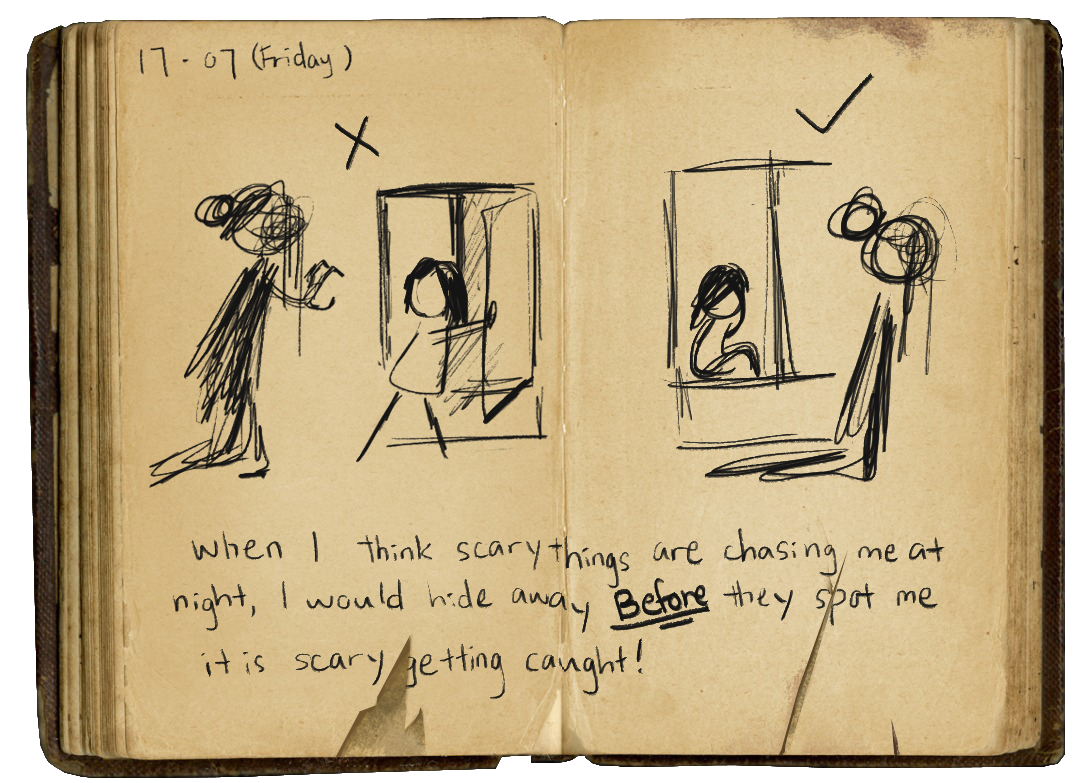 17-07 (Friday)
when I think scary things are chasing me at
night, I would hide away Before they spot me
it is scary getting caught!